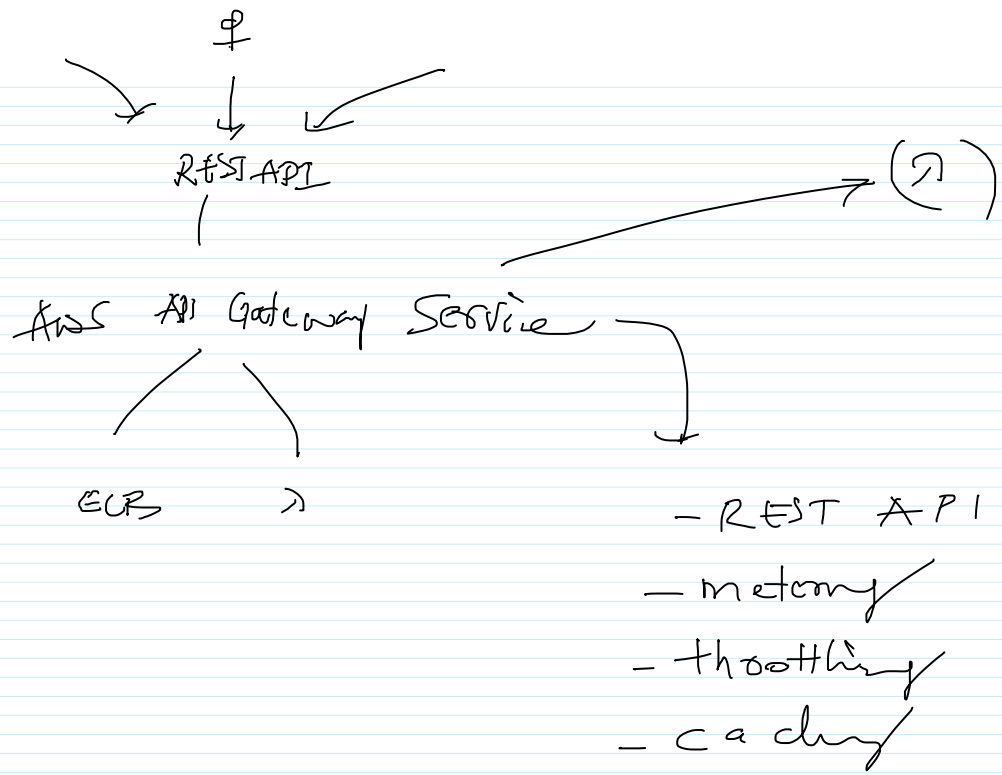 REST API
(λ)
AWS API Gateway Service
λ
- REST API
- metering
- throttling
- caching